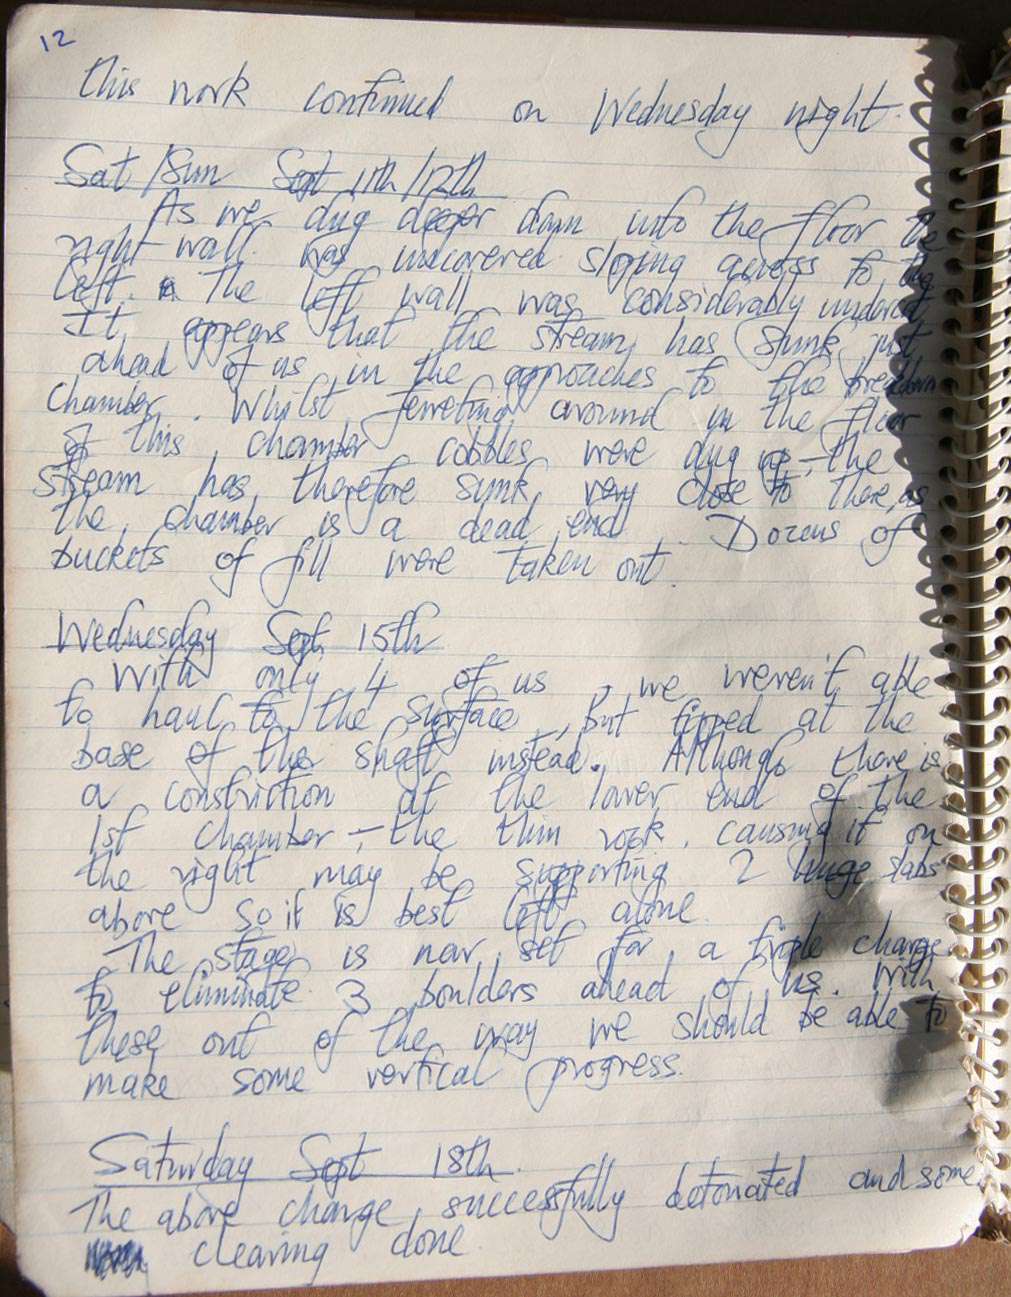 12
this work continued on Wednesday night.
Sat/Sun Sept 11th/12th
As we dug deeper down into the floor the
right wall was uncovered sloping across to the
left. The left wall was considerably undercut
It appears that the stream has sunk just
ahead of us in the approaches to the breakdown
chamber. Whilst ferreting around in the floor
of this chamber cobbles were dug up - the
stream has therefore sunk very close to there, as
the chamber is a dead end. Dozens of
buckets of fill were taken out.
Wednesday Sept 15th
With only 4 of us, we weren't able
to haul to the surface, but tipped at the
base of the shaft instead. Although there is
a constriction at the lower end of the
1st chamber - the thin rock causing it on
the right may be supporting 2 huge slabs
above so it is best left alone.
The stage is now set for a triple charge
to eliminate 3 boulders ahead of us. With
these out of the way we should be able to
make some vertical progress.
Saturday Sept 18th.
The above charge successfully detonated and some
clearing done.